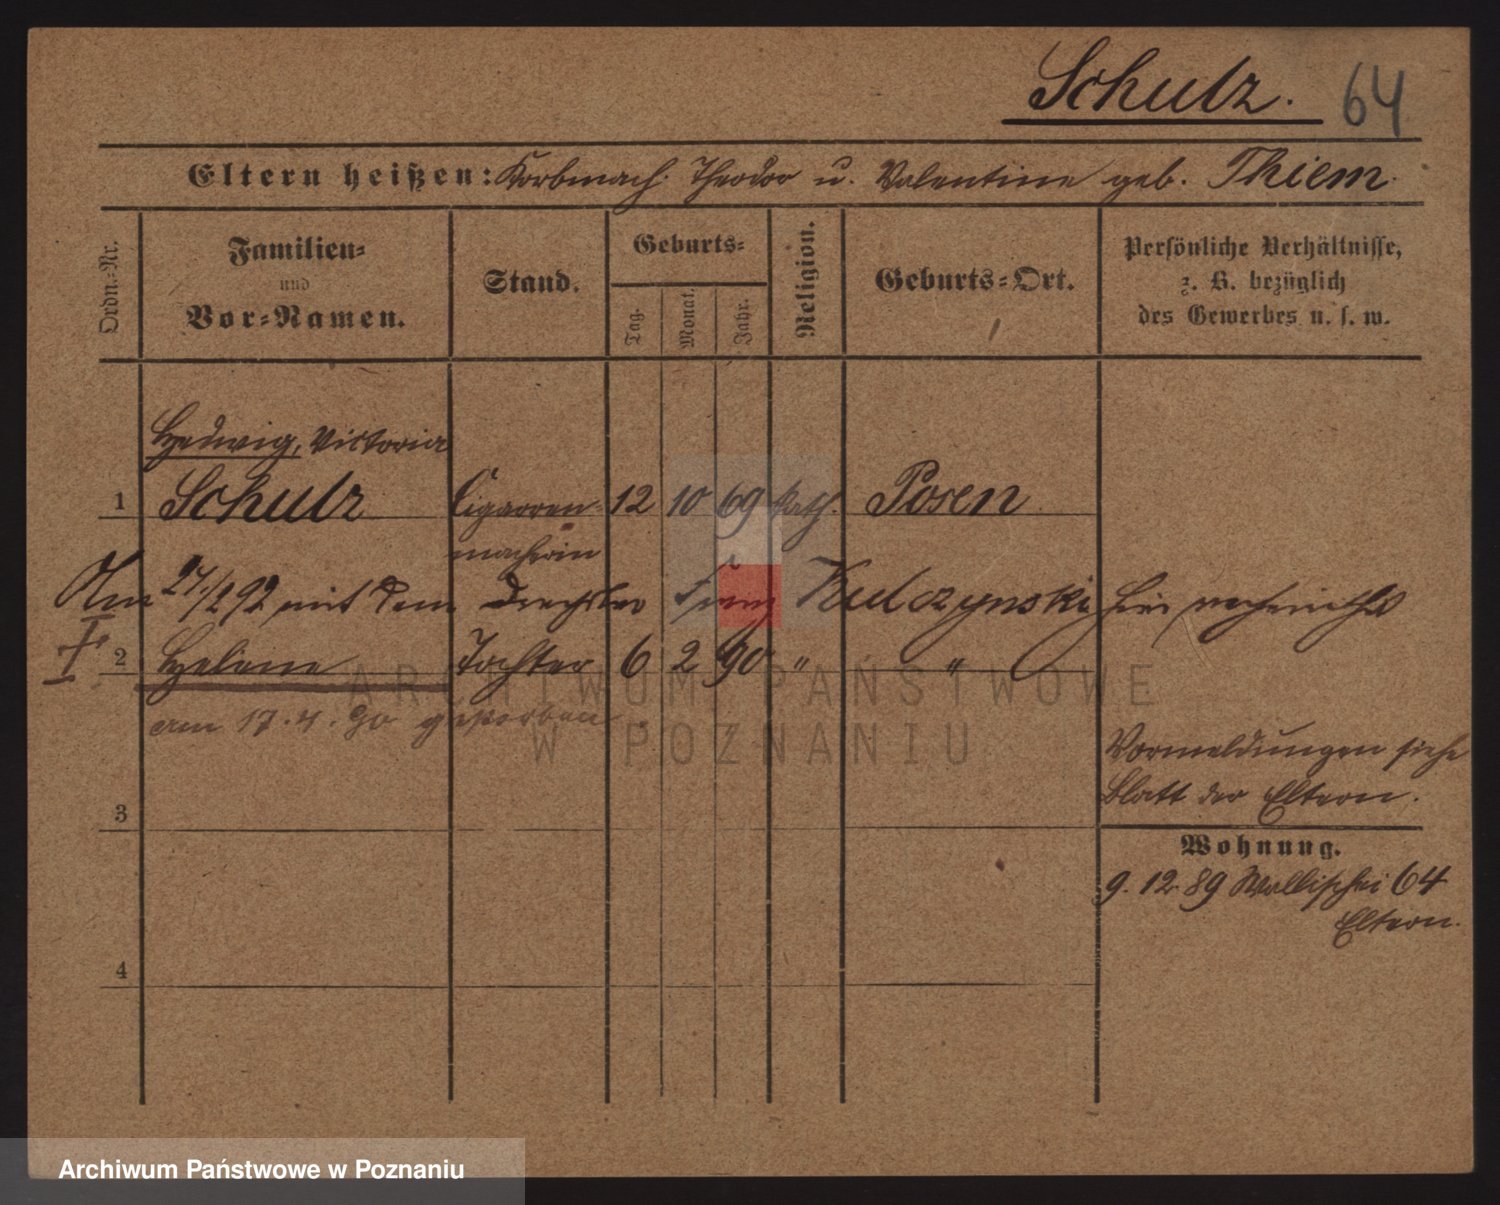 Schulz. 64
Eltern heißen: Korbmach. Theodor u. Valentine geb. Thiem.
Ordn.-Nr.
Familien-
und
Vor-Namen.
Stand.
Geburts-
Tag. Monat. Jahr.
Religion.
Geburts-Ort.
Persönliche Verhältnisse,
z. B. bezüglich
des Gewerbes u. s. w.
Hedwig, Victoria
1 Schulz Cigarren- 12 10 69 kath. Posen
macherin
Am 27/1 92 mit dem Drechsler Kulczynski hier verheirathet
2 Helene Tochter 6 2 90 " "
am 17.4.90 gestorben.
Vormeldungen siehe
Blatt der Eltern.
3
Wohnung.
9. 12. 89 Wallischei 64
Eltern.
4
ARCHIWUM PAŃSTWOWE
W POZNANIU
Archiwum Państwowe w Poznaniu